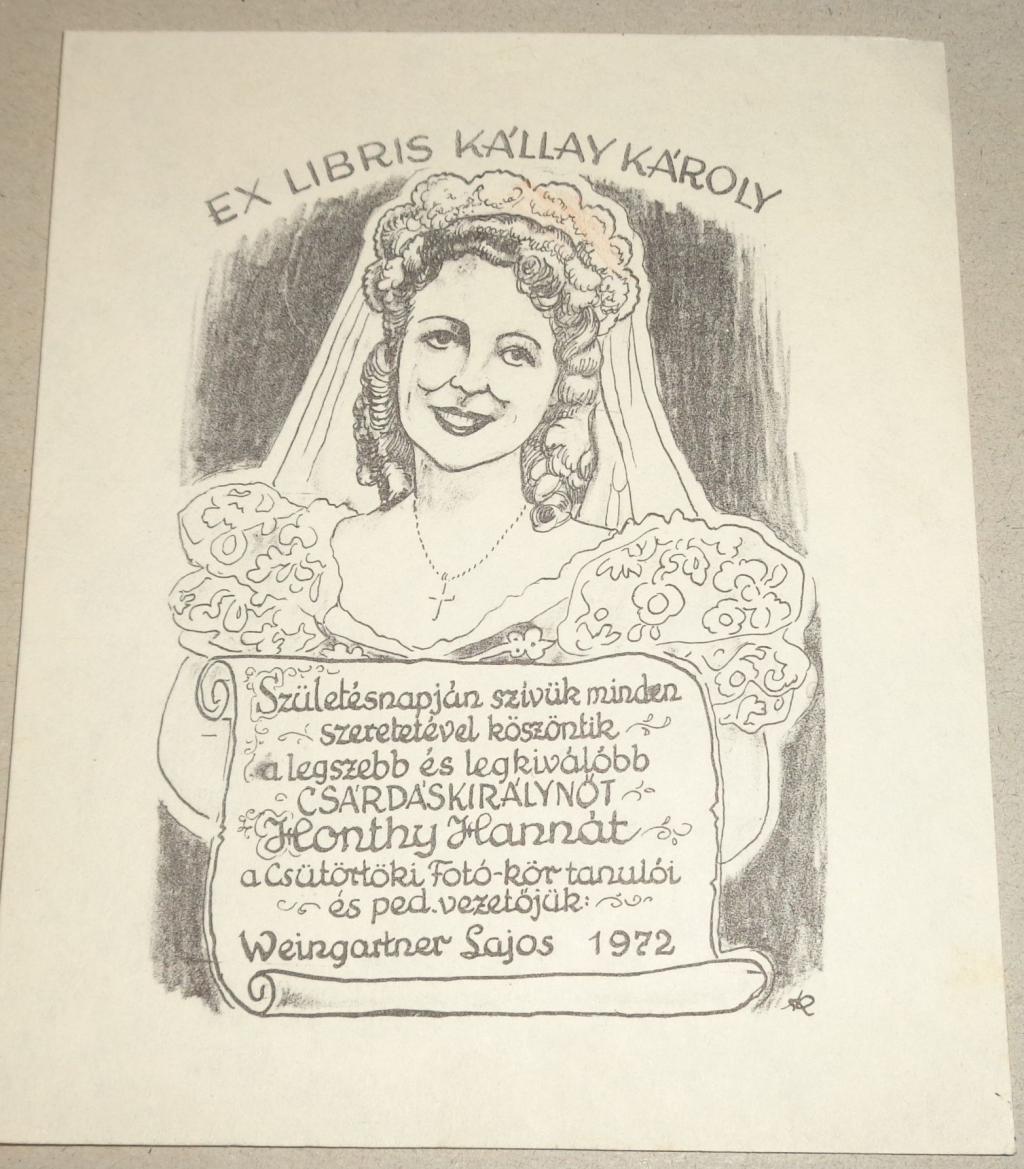 EX LIBRIS KÁLLAY KÁROLY
Születésnapján szívük minden
szeretetével köszöntik
a legszebb és legkiválóbb
CSÁRDÁSKIRÁLYNŐT
Honthy Hannát
a Csütörtöki Fotó-kör tanulói
és ped. vezetőjük:
Weingartner Lajos 1972